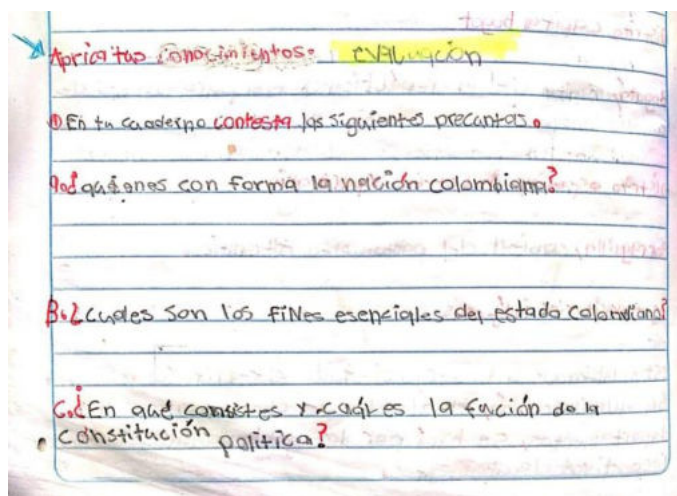 Aprica tus conocimientos. evaluación
① En tu cuaderno contesta las siguientes precantas.
a.¿quiénes con forma la nación colombiana?
B.¿cuales son los fines esenciales del estado colombiano?
C.¿En qué consistes y cuál es la fución de la
constitución política?